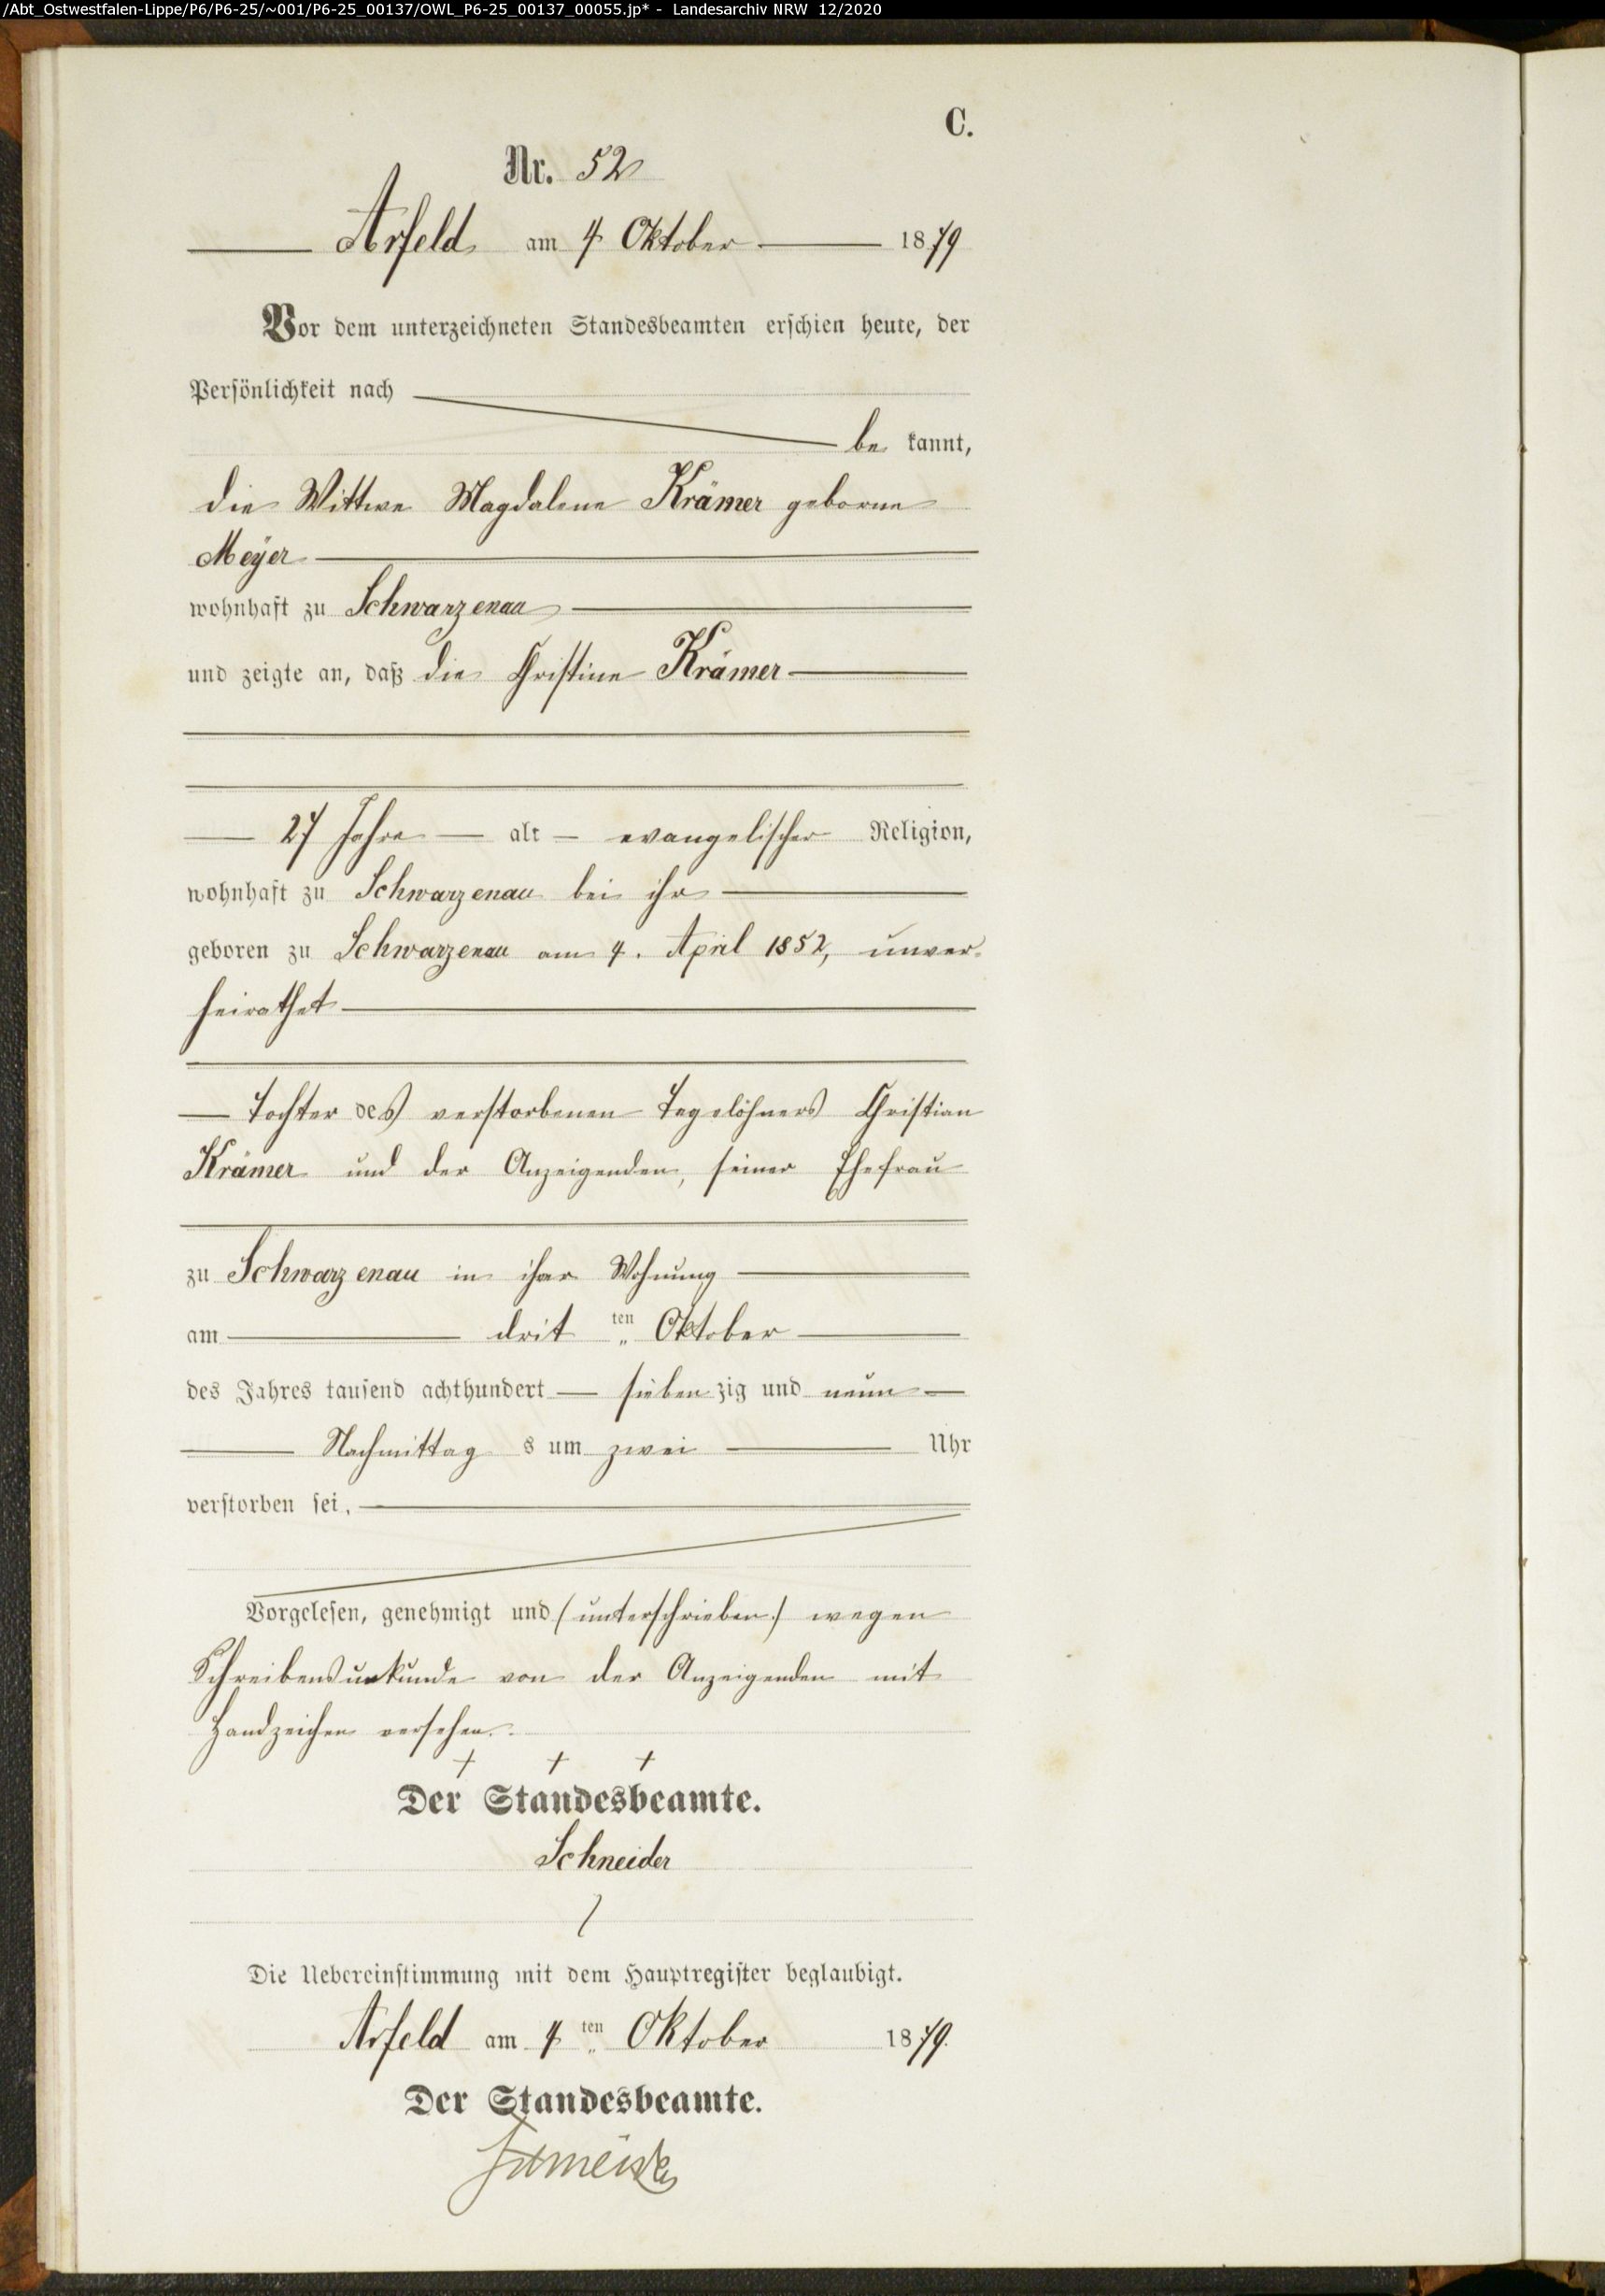 /Abt_Ostwestfalen-Lippe/P6/P6-25/~001/P6-25_00137/OWL_P6-25_00137_00055.jp* - Landesarchiv NRW 12/2020
C.
Nr. 52
Arfeld am 4 Oktober 1879
Vor dem unterzeichneten Standesbeamten erschien heute, der
Persönlichkeit nach
be kannt,
die Wittwe Magdalene Krämer geborne
Meÿer
wohnhaft zu Schwarzenau
und zeigte an, daß die Christine Krämer
27 Jahre alt evangelischer Religion,
wohnhaft zu Schwarzenau bei ihr
geboren zu Schwarzenau am 4. April 1852, unver-
heirathet
Tochter des verstorbenen Tagelöhners Christian
Krämer und der Anzeigenden, seiner Ehefrau
zu Schwarzenau in ihrer Wohnung
am drit ten Oktober
des Jahres tausend achthundert sieben zig und neun
Nachmittag s um zwei Uhr
verstorben sei.
Vorgelesen, genehmigt und (unterschrieben) wegen
Schreibensunkunde von der Anzeigenden mit
Handzeichen versehen.
+ + +
Der Standesbeamte.
Schneider
Die Uebereinstimmung mit dem Hauptregister beglaubigt.
Arfeld am 4 ten Oktober 1879.
Der Standesbeamte.
Schneider